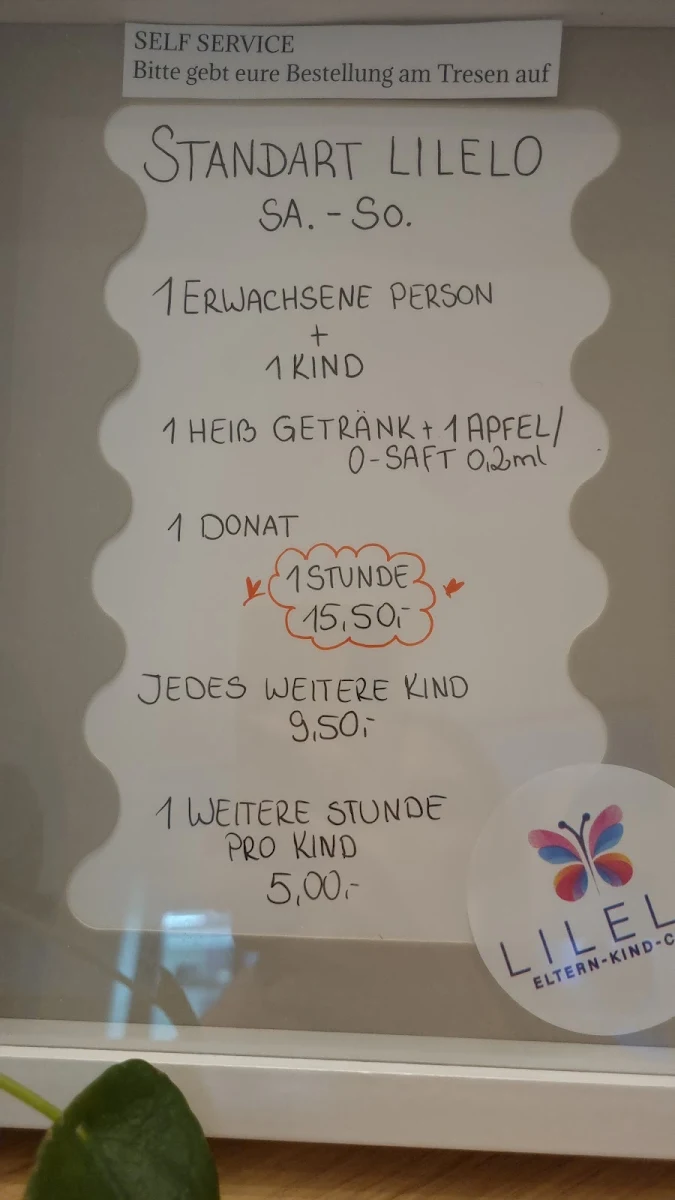 SELF SERVICE
Bitte gebt eure Bestellung am Tresen auf
STANDART LILELO
SA. - SO.
1 ERWACHSENE PERSON
+
1 KIND
1 HEIß GETRÄNK + 1 APFEL/
O-SAFT 0,2ml
1 DONAT
1 STUNDE
15,50,-
JEDES WEITERE KIND
9,50,-
1 WEITERE STUNDE
PRO KIND
5,00,-
LILEL
ELTERN-KIND-C